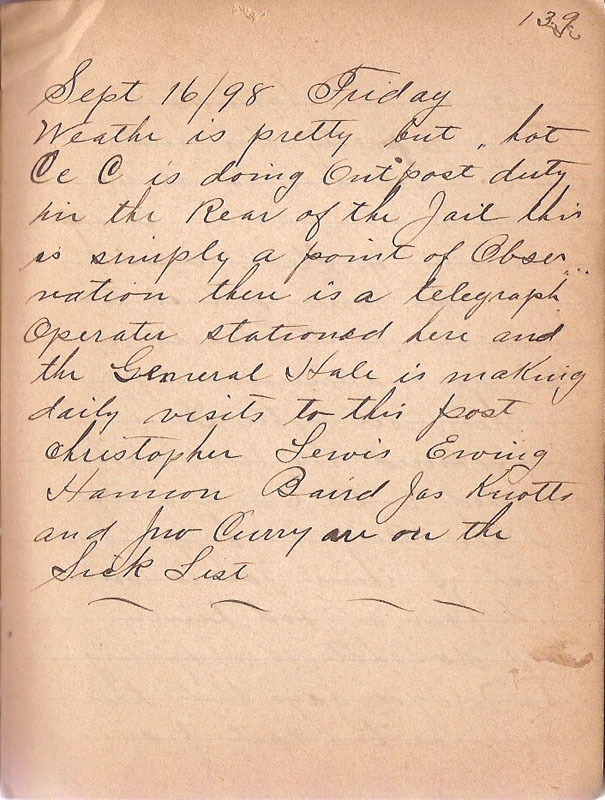 139
Sept 16/98 Friday
Weathr is pretty but hot
Co C is doing Outpost duty
in the Rear of the Jail this
is simply a point of Obser
vation there is a telegraph
Operater stationed here and
the General Hale is making
daily visits to this post
Christopher Lewis Ewing
Hannon Baird Jas Knotts
and Jno Curry are on the
Sick List